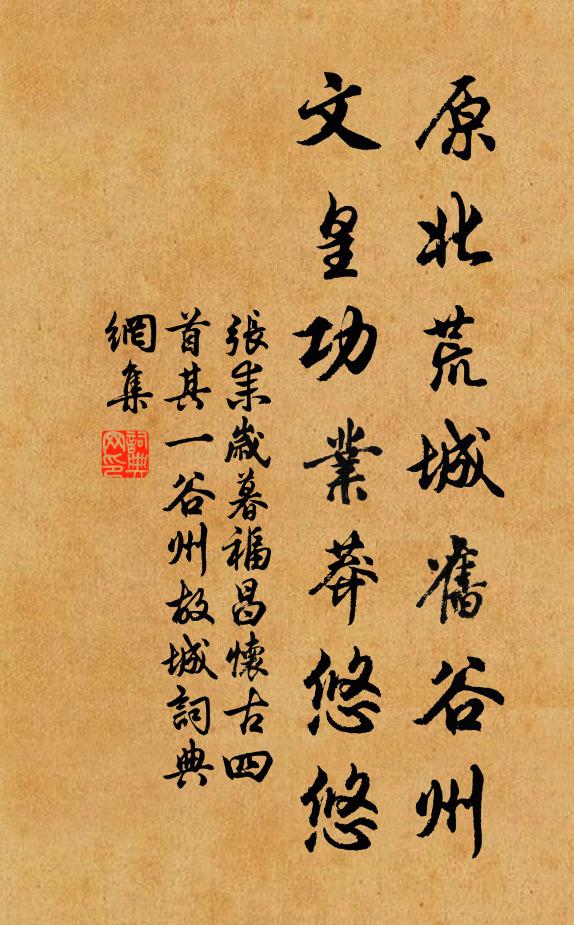 原北荒城舊谷州
文皇功業莽悠悠
張耒歲暮福昌懷古四
首其一谷州故城詞典
網集
詞典
网印